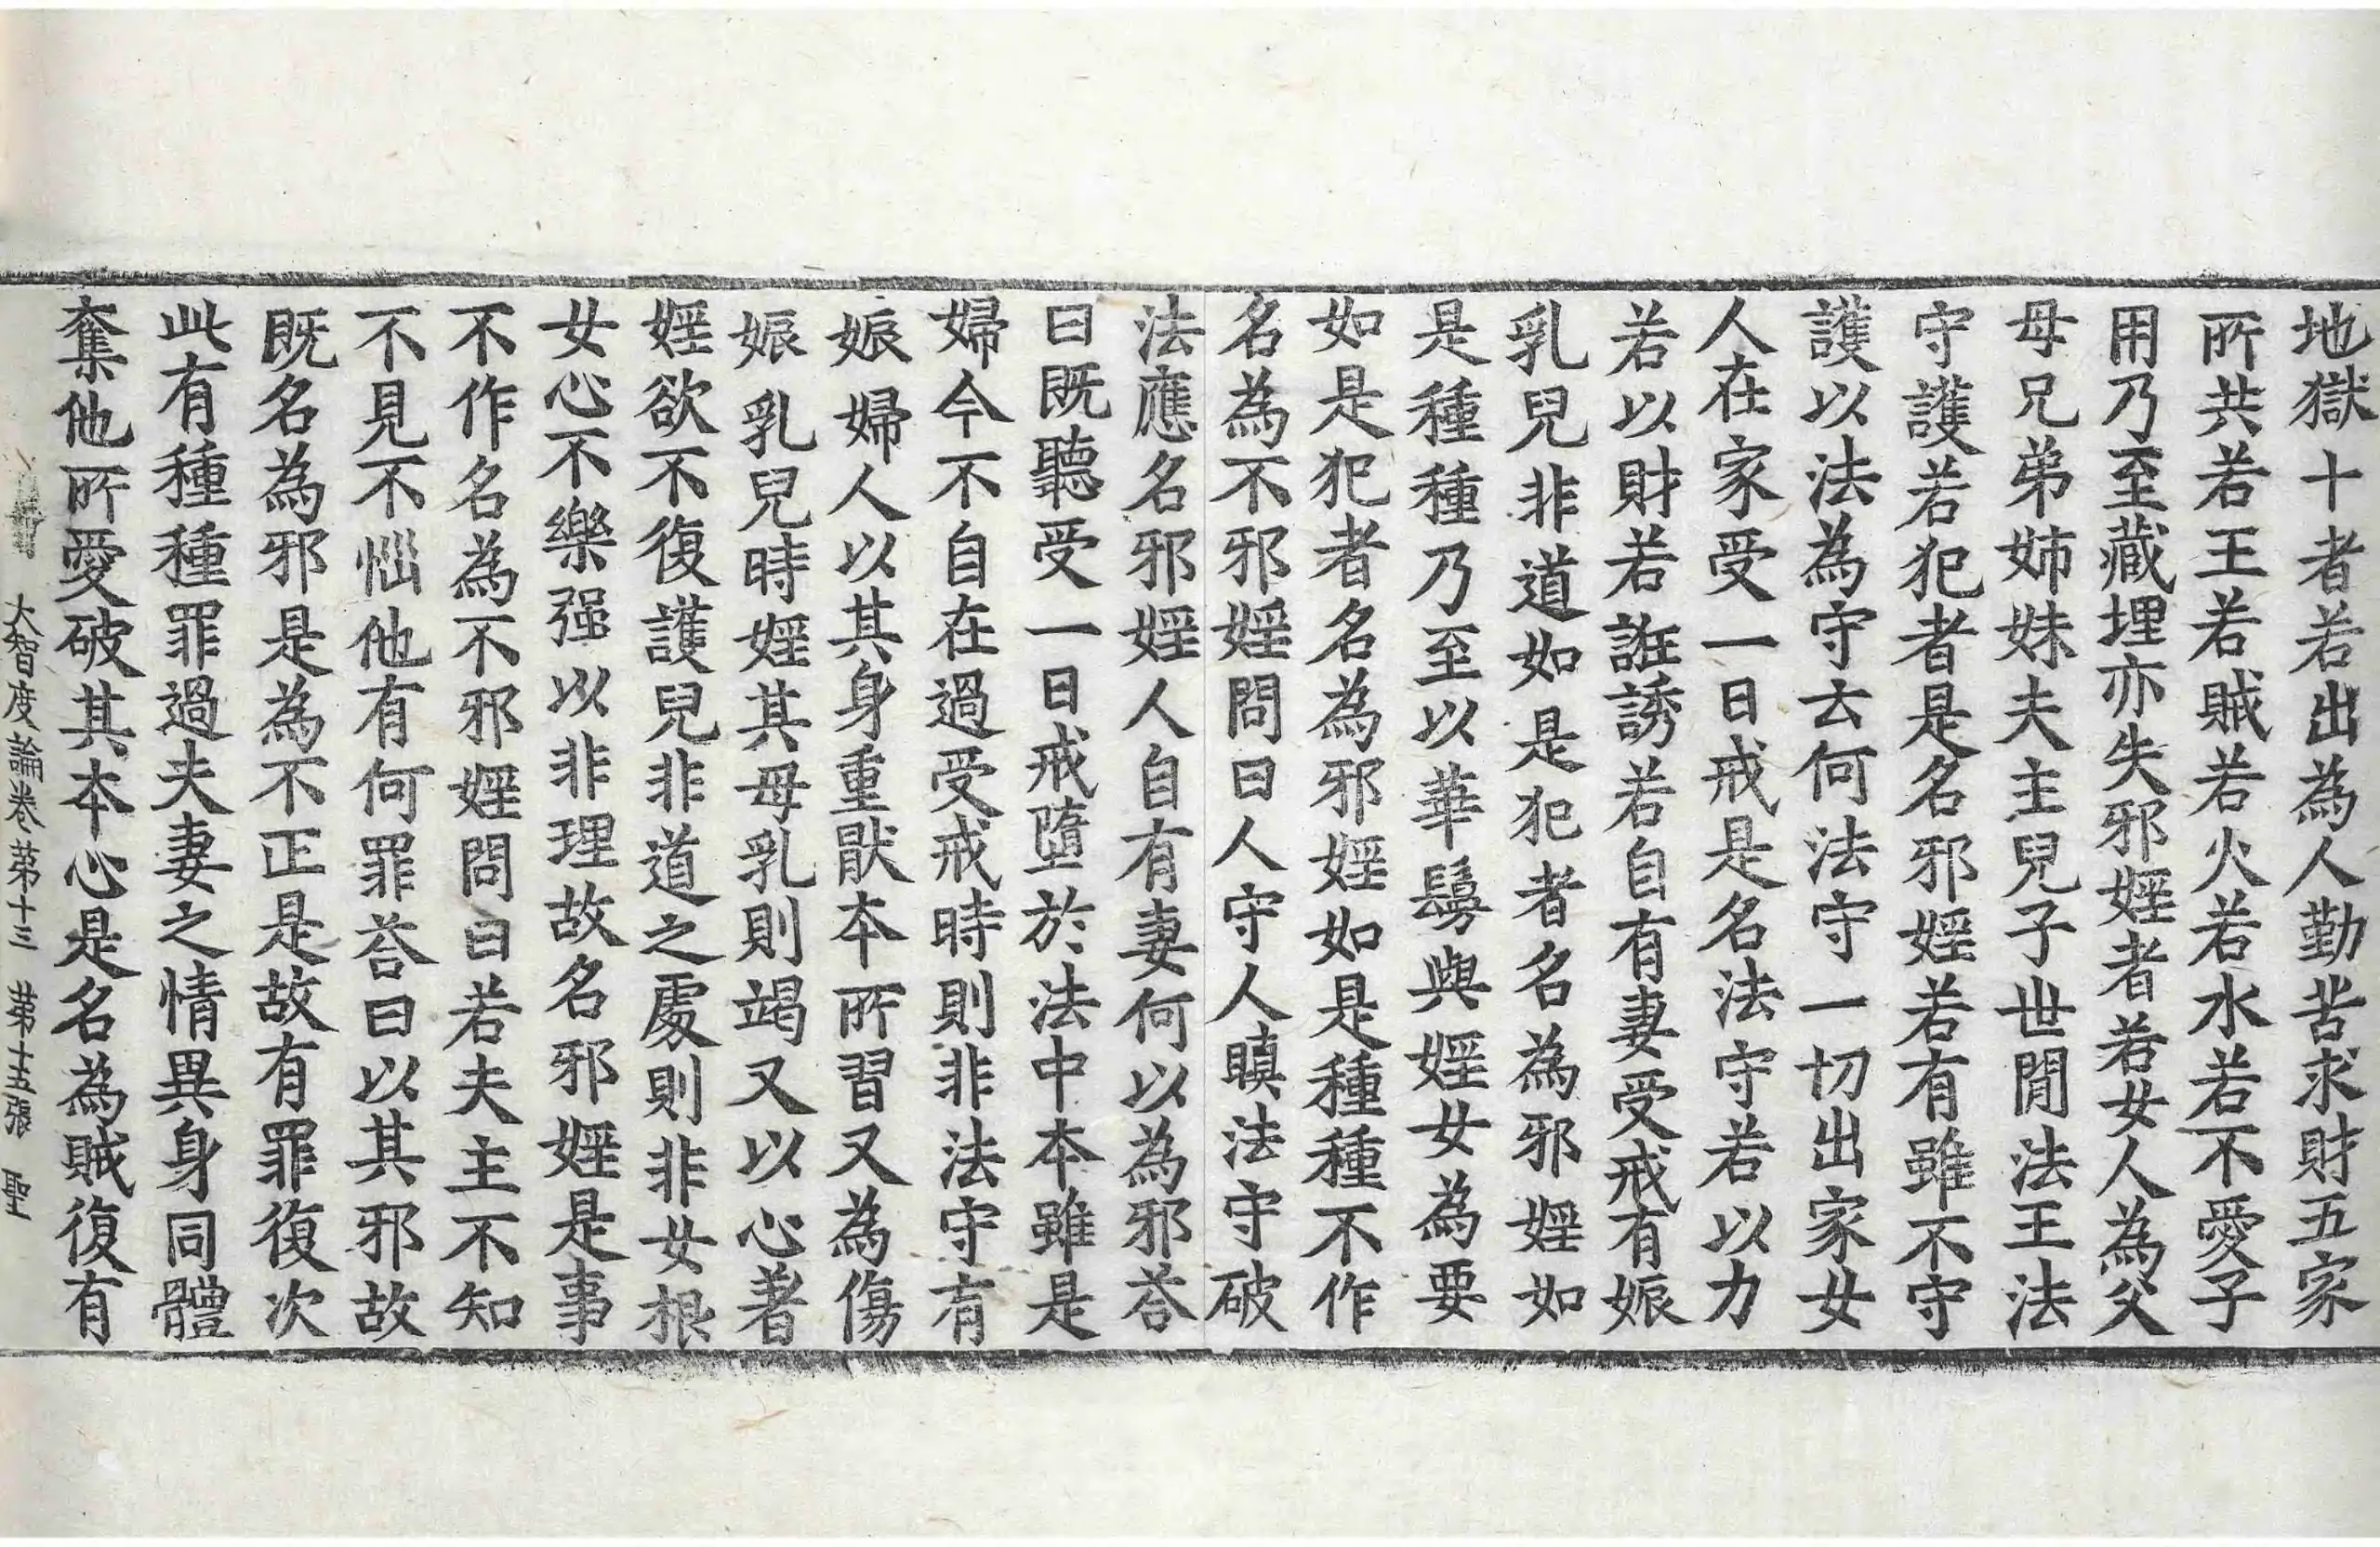 地獄十者若出為人勤苦求財五家
所共若王若賊若火若水若不愛子
用乃至藏埋亦失邪婬者若女人為父
母兄弟姉妹夫主兒子世閒法王法
守護若犯者是名邪婬若有雖不守
護以法為守云何法守一切出家女
人在家受一日戒是名法守若以力
若以財若誑誘若自有妻受戒有娠
乳兒非道如是犯者名為邪婬如
是種種乃至以華鬘與婬女為要
如是犯者名為邪婬如是種種不作
名為不邪婬問曰人守人瞋法守破
法應名邪婬人自有妻何以為邪荅
曰既聽受一日戒墮於法中本雖是
婦今不自在過受戒時則非法守有
娠婦人以其身重猒本所習又為傷
娠乳兒時婬其母乳則竭又以心著
婬欲不復護兒非道之處則非女根
女心不樂强以非理故名邪婬是事
不作名為不邪婬問曰若夫主不知
不見不惱他有何罪荅曰以其邪故
既名為邪是為不正是故有罪復次
此有種種罪過夫妻之情異身同體
奪他所愛破其本心是名為賊復有
大智度論卷第十三 第十五張 聖